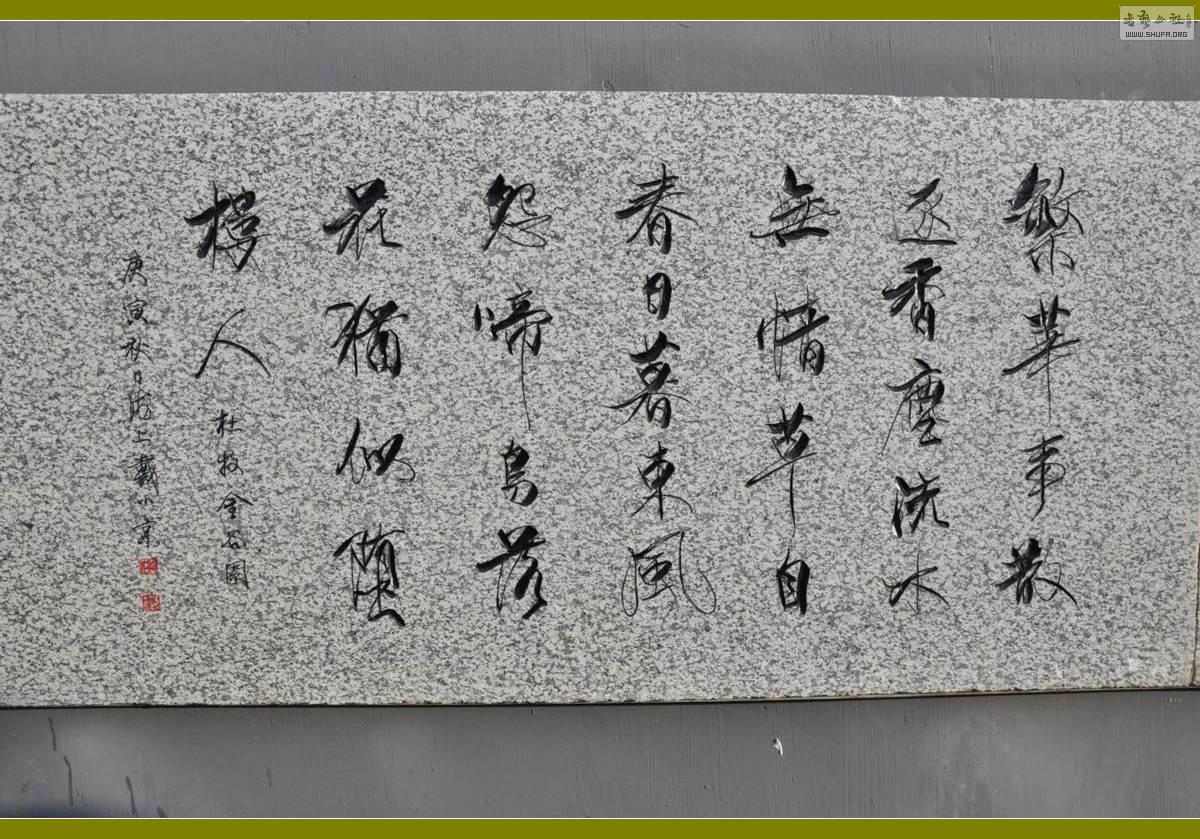 繁華事散
逐香塵流水
無情草自
春日暮東風
怨啼鳥落
花猶似墮
樓人 杜牧金谷園
庚寅秋日海上戴小京
WWW.SHUFA.ORG